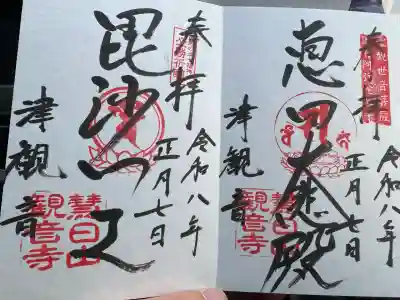 奉拝
令和八年
正月七日
恵日大悲殿
津観音
慧日山
観音寺
奉拝
令和八年
正月七日
毘沙門天
津観音
慧日山
観音寺